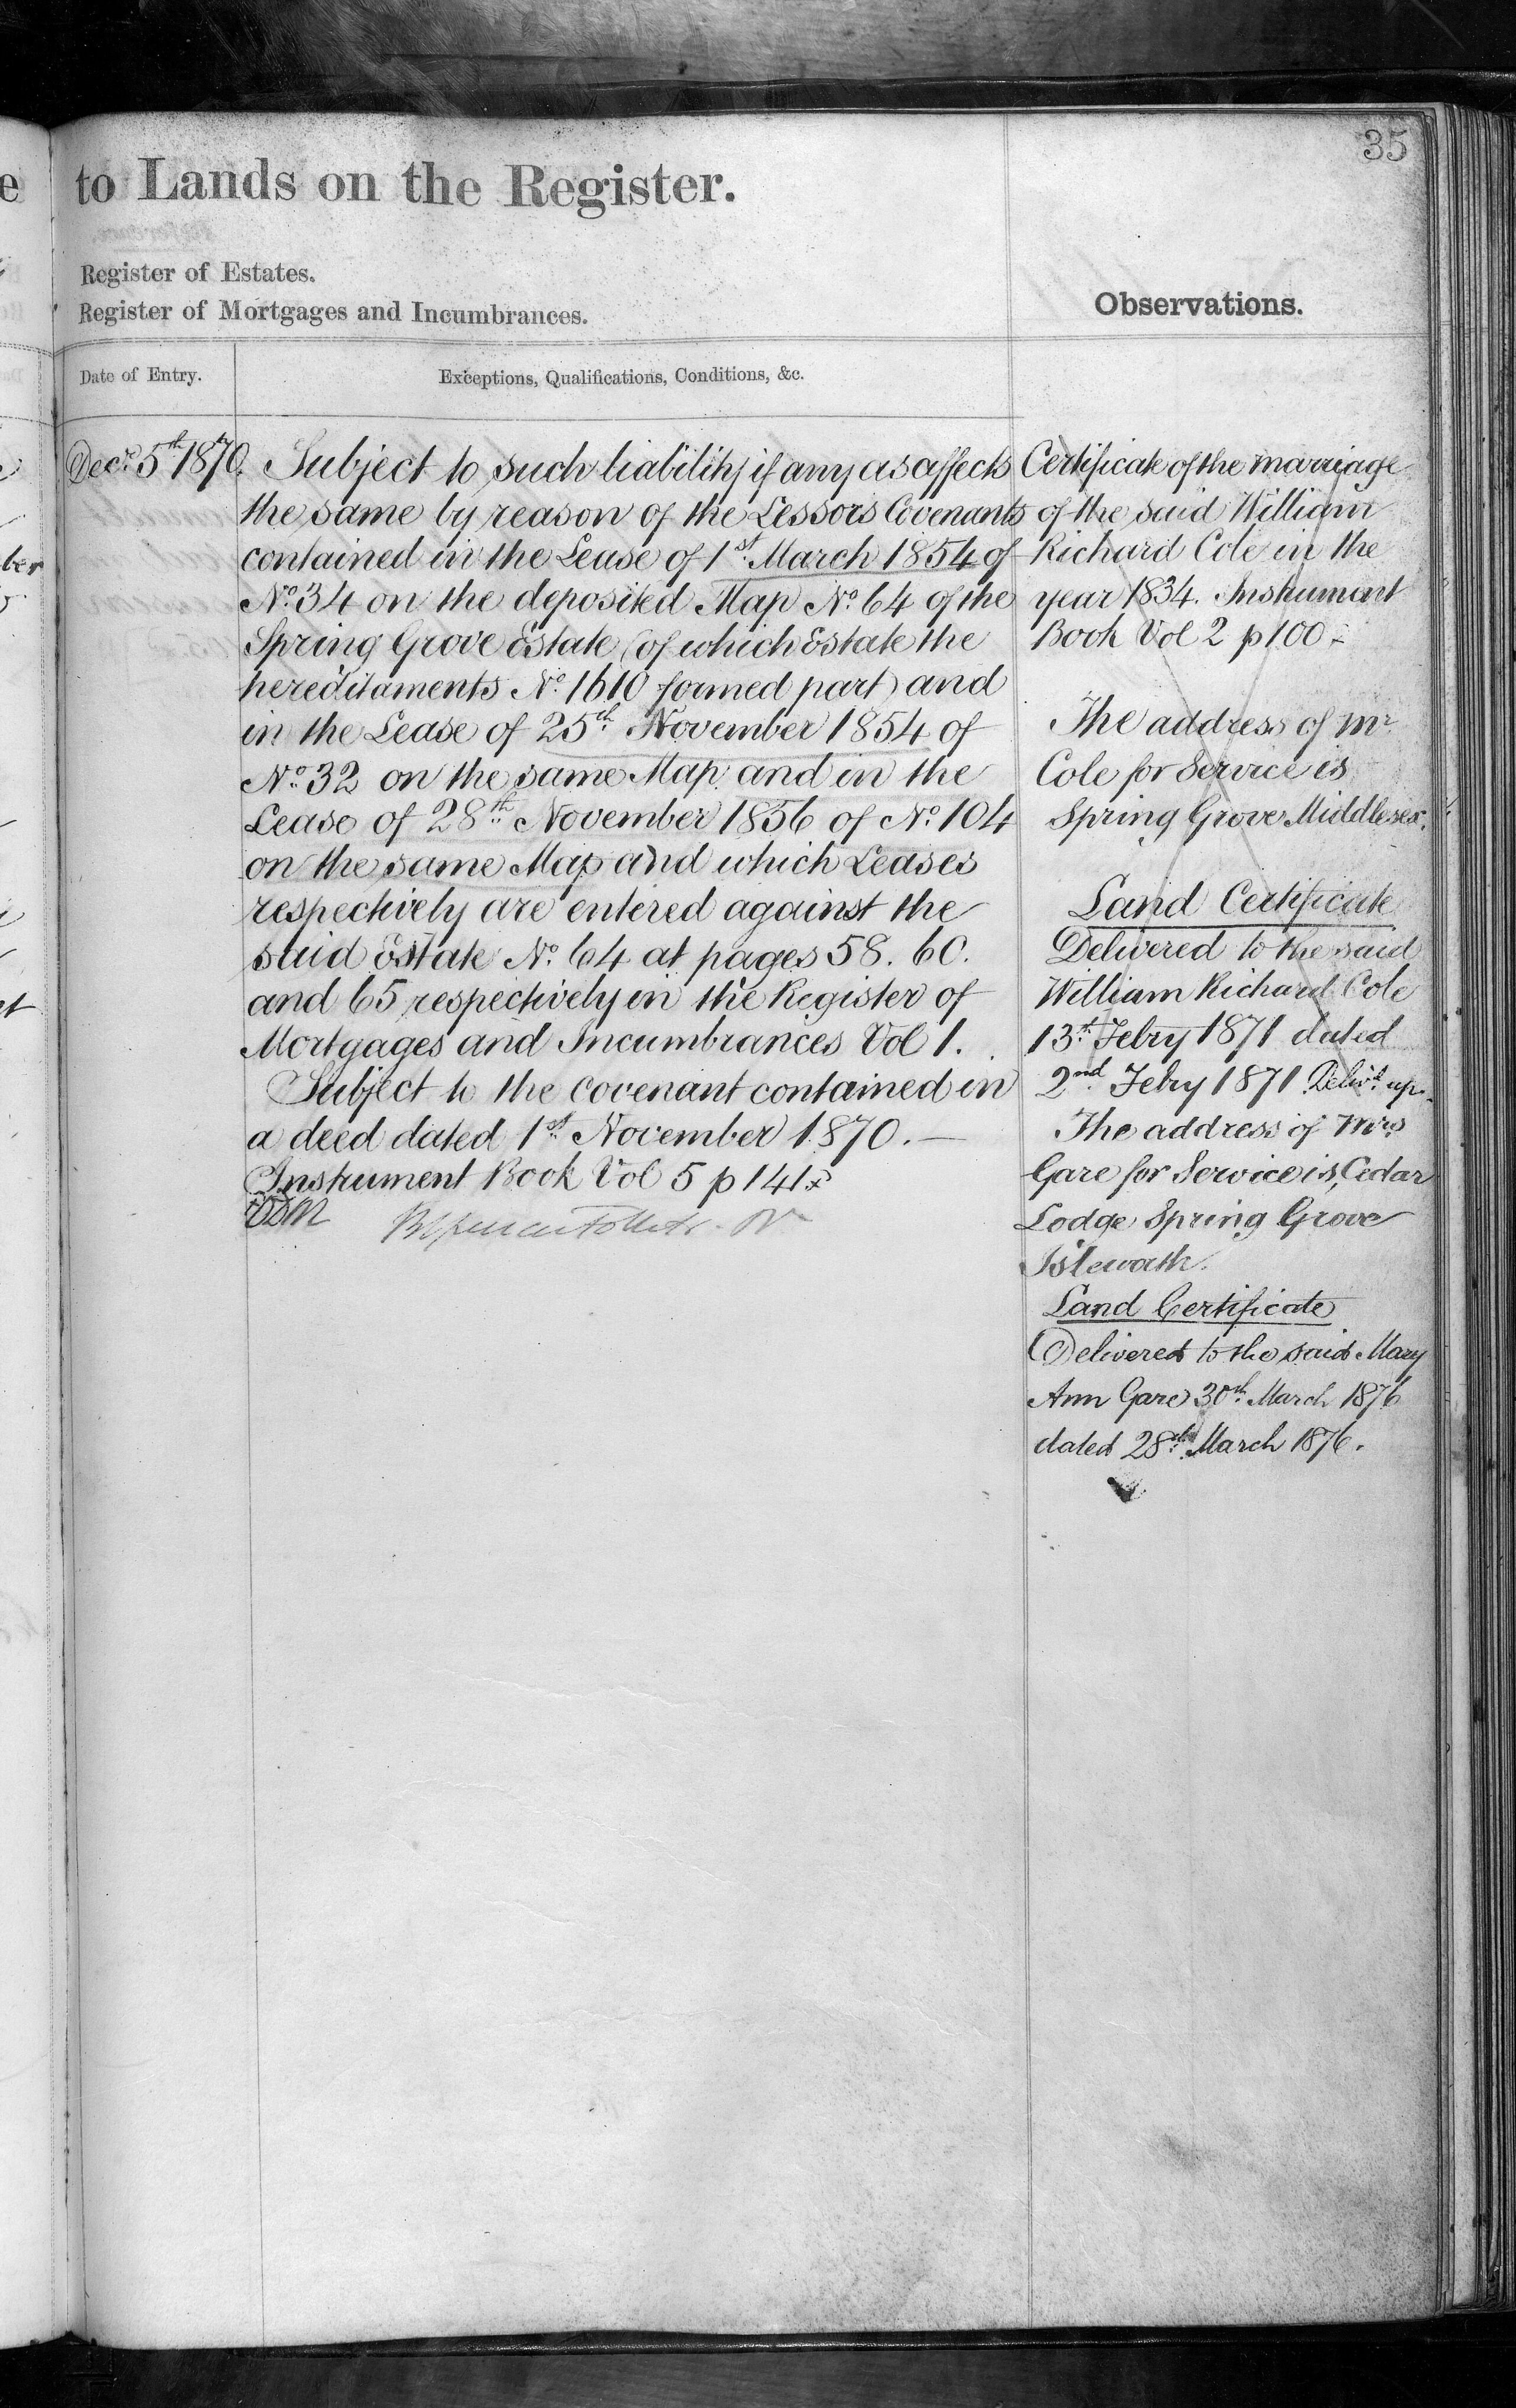 35
to Lands on the Register.
Register of Estates.
Register of Mortgages and Incumbrances.
Observations.
Date of Entry.
Exceptions, Qualifications, Conditions, &c.
Decr. 5th 1870.
Subject to such liability if any as affects
the same by reason of the Lessors Covenants
contained in the Lease of 1st March 1854 of
No. 34 on the deposited Map No. 64 of the
Spring Grove Estate (of which Estate the
hereditaments No. 1610 formed part) and
in the Lease of 25th November 1854 of
No. 32 on the same Map and in the
Lease of 28th November 1856 of No. 104
on the same Map and which Leases
respectively are entered against the
said Estate No. 64 at pages 58. 60.
and 65 respectively in the Register of
Mortgages and Incumbrances Vol 1.
Subject to the covenant contained in
a deed dated 1st November 1870. —
Instrument Book Vol 5 p 141
Certificate of the marriage
of the said William
Richard Cole in the
year 1834. Instrument
Book Vol 2 p 100
The address of Mr.
Cole for Service is
Spring Grove Middlesex.
Land Certificate
Delivered to the said
William Richard Cole
13th Febry 1871 dated
2nd Febry 1871 Delivd. up.
The address of Mrs
Gare for Service is, Cedar
Lodge Spring Grove
Isleworth.
Land Certificate
Delivered to the said Mary
Ann Gare 30th March 1876
dated 28th March 1876.